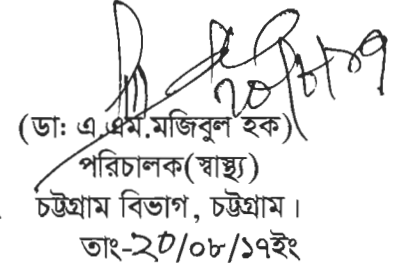 ২০/৮/১৭
(ডা: এ.এম.মজিবুল হক)
পরিচালক(স্বাস্থ্য)
চট্টগ্রাম বিভাগ, চট্টগ্রাম।
তাং-২০/০৮/১৭ইং